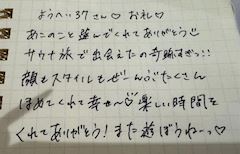 ようへい37さん♡ お礼♡
あこのこと選んでくれてありがとう♡
サウナ旅で出会えたの奇跡すぎっ!!
顔もスタイルもぜんぶたくさん
ほめてくれて幸せ〜♡楽しい時間を
くれてありがとう!また遊ぼうねーっ♡